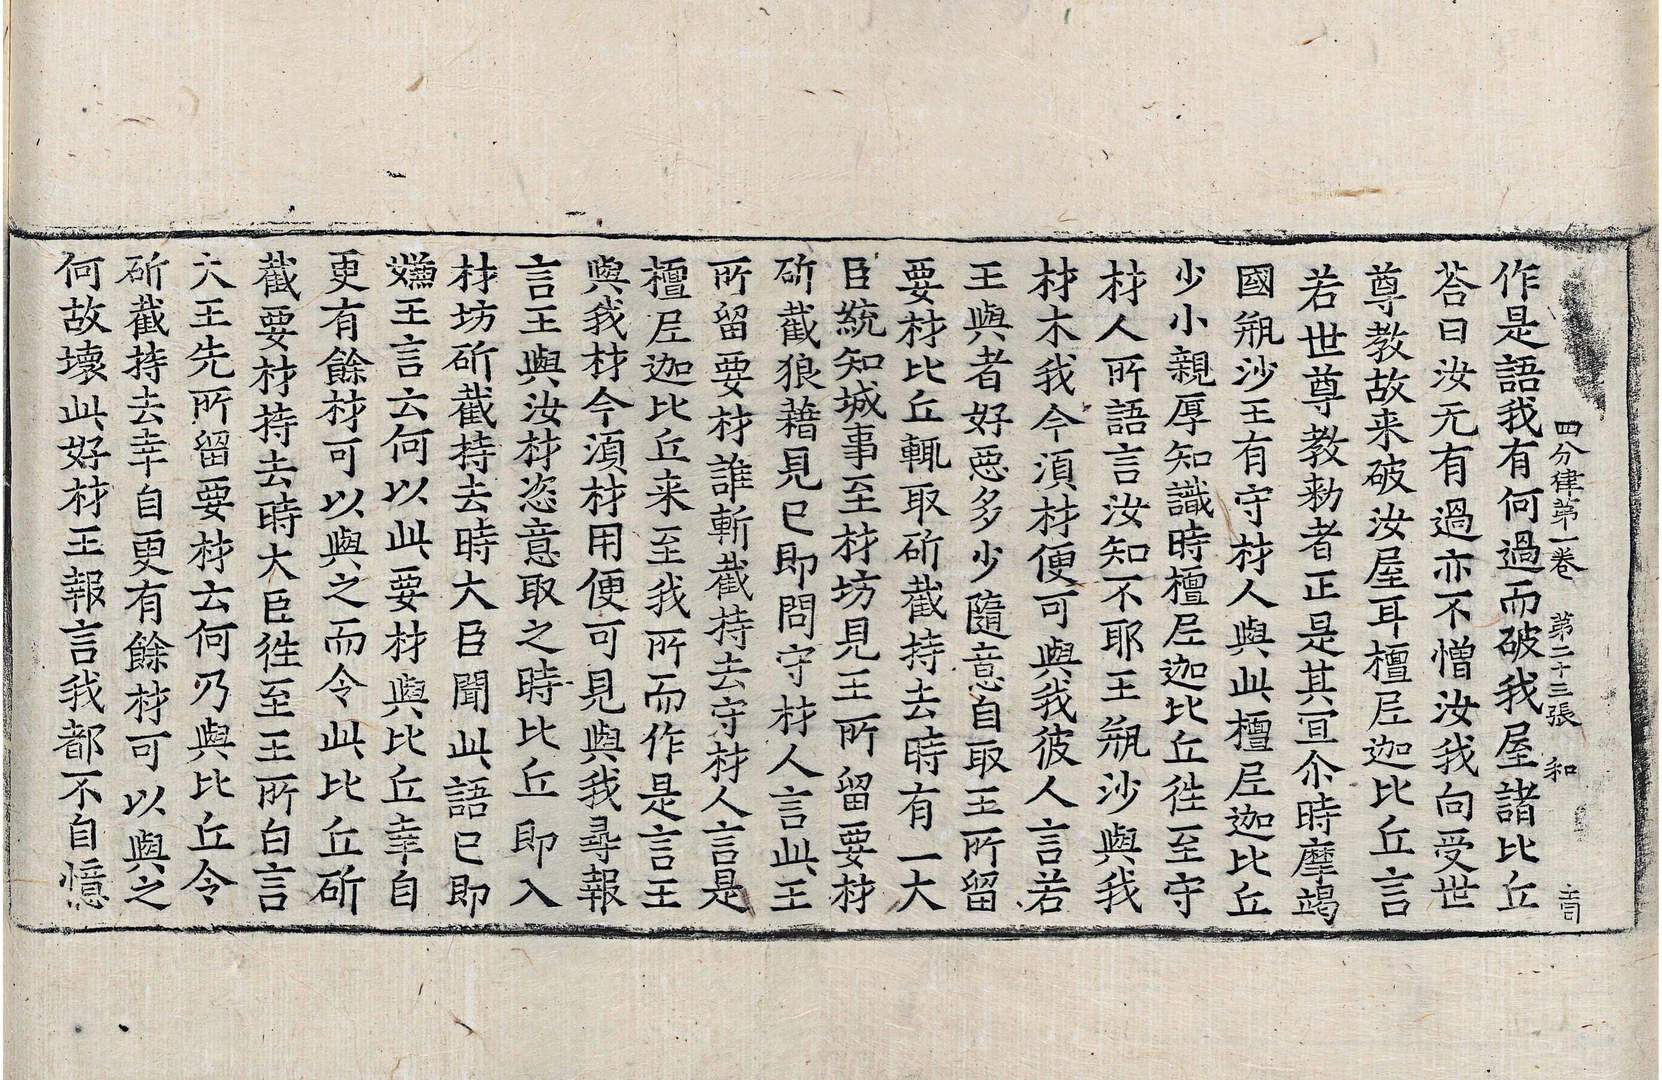 四分律第一卷 第二十三張 和
作是語我有何過而破我屋諸比丘
荅曰汝无有過亦不憎汝我向受世
尊教故来破汝屋耳檀尼迦比丘言
若世尊教勑者正是其宜尒時摩竭
國瓶沙王有守材人與此檀尼迦比丘
少小親厚知識時檀尼迦比丘徃至守
材人所語言汝知不耶王瓶沙與我
材木我今湏材便可與我彼人言若
王與者好惡多少隨意自取王所留
要材比丘輙取斫截持去時有一大
臣統知城事至材坊見王所留要材
斫截狼藉見已即問守材人言此王
所留要材誰斬截持去守材人言是
檀尼迦比丘来至我所而作是言王
與我材今湏材用便可見與我尋報
言王與汝材恣意取之時比丘即入
材坊斫截持去時大臣聞此語已即
嫌王言云何以此要材與比丘幸自
更有餘材可以與之而令此比丘斫
截要材持去時大臣徃至王所白言
大王先所留要材云何乃與比丘令
斫截持去幸自更有餘材可以與之
何故壊此好材王報言我都不自憶